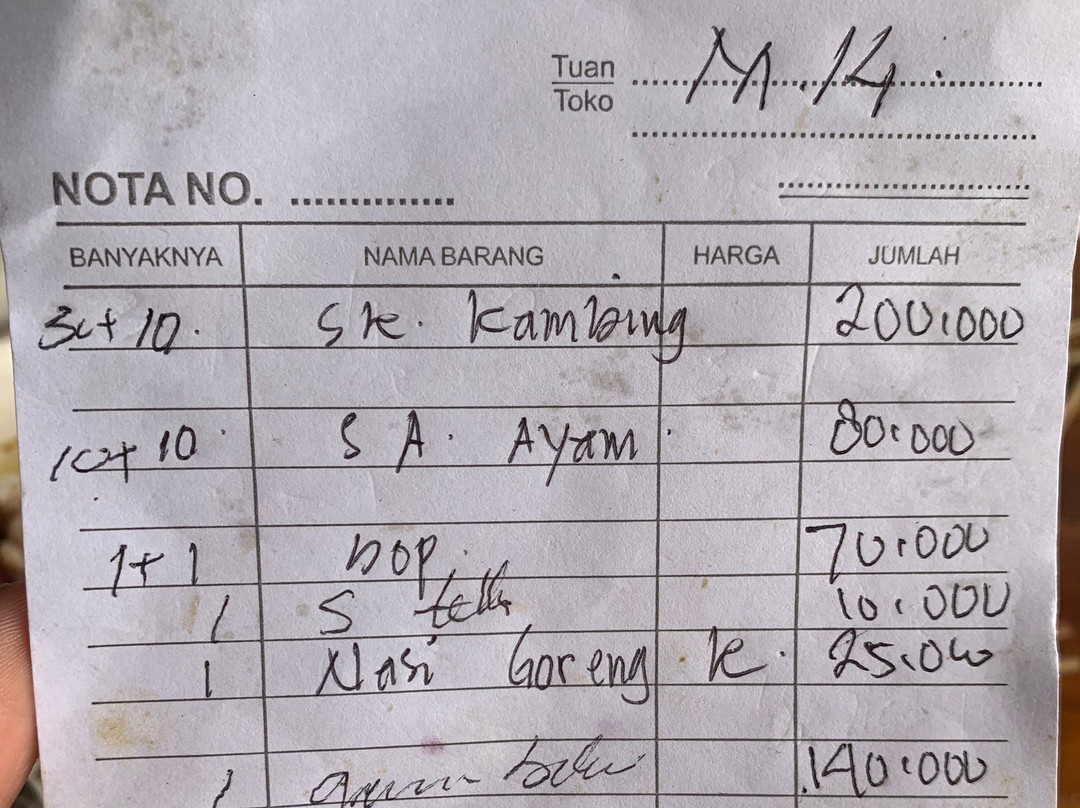 Tuan M.14.
Toko
NOTA NO. ...............
BANYAKNYA NAMA BARANG HARGA JUMLAH
10. Sk. Kambing 200.000
10+10. S A. Ayam. 80.000
1+1 Sop. 70.000
1 S telur 10.000
1 Nasi Goreng K. 25.000
1 140.000